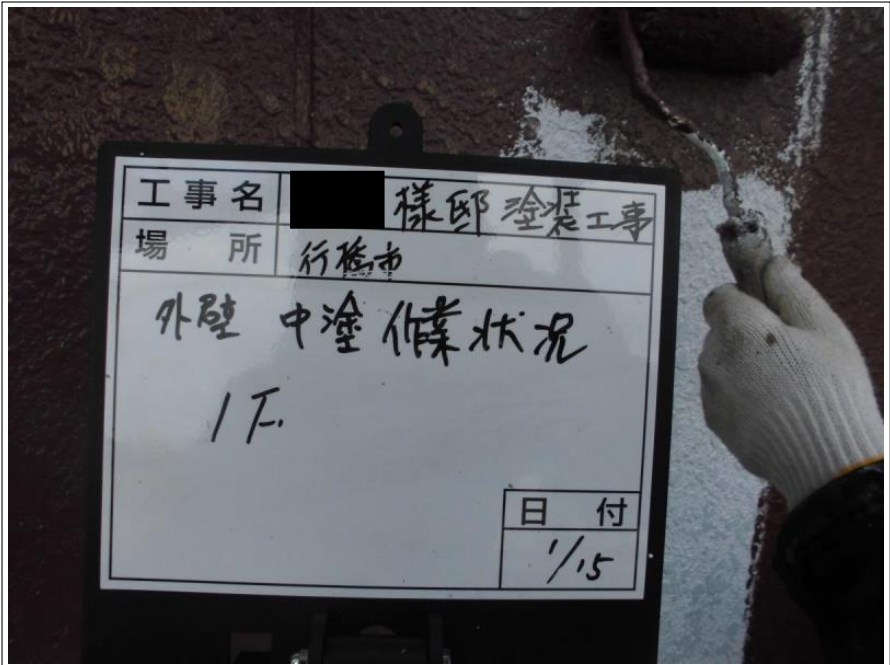 工事名 様邸 塗装工事
場所 行橋市
外壁 中塗 作業状況
1F.
日付
1/15